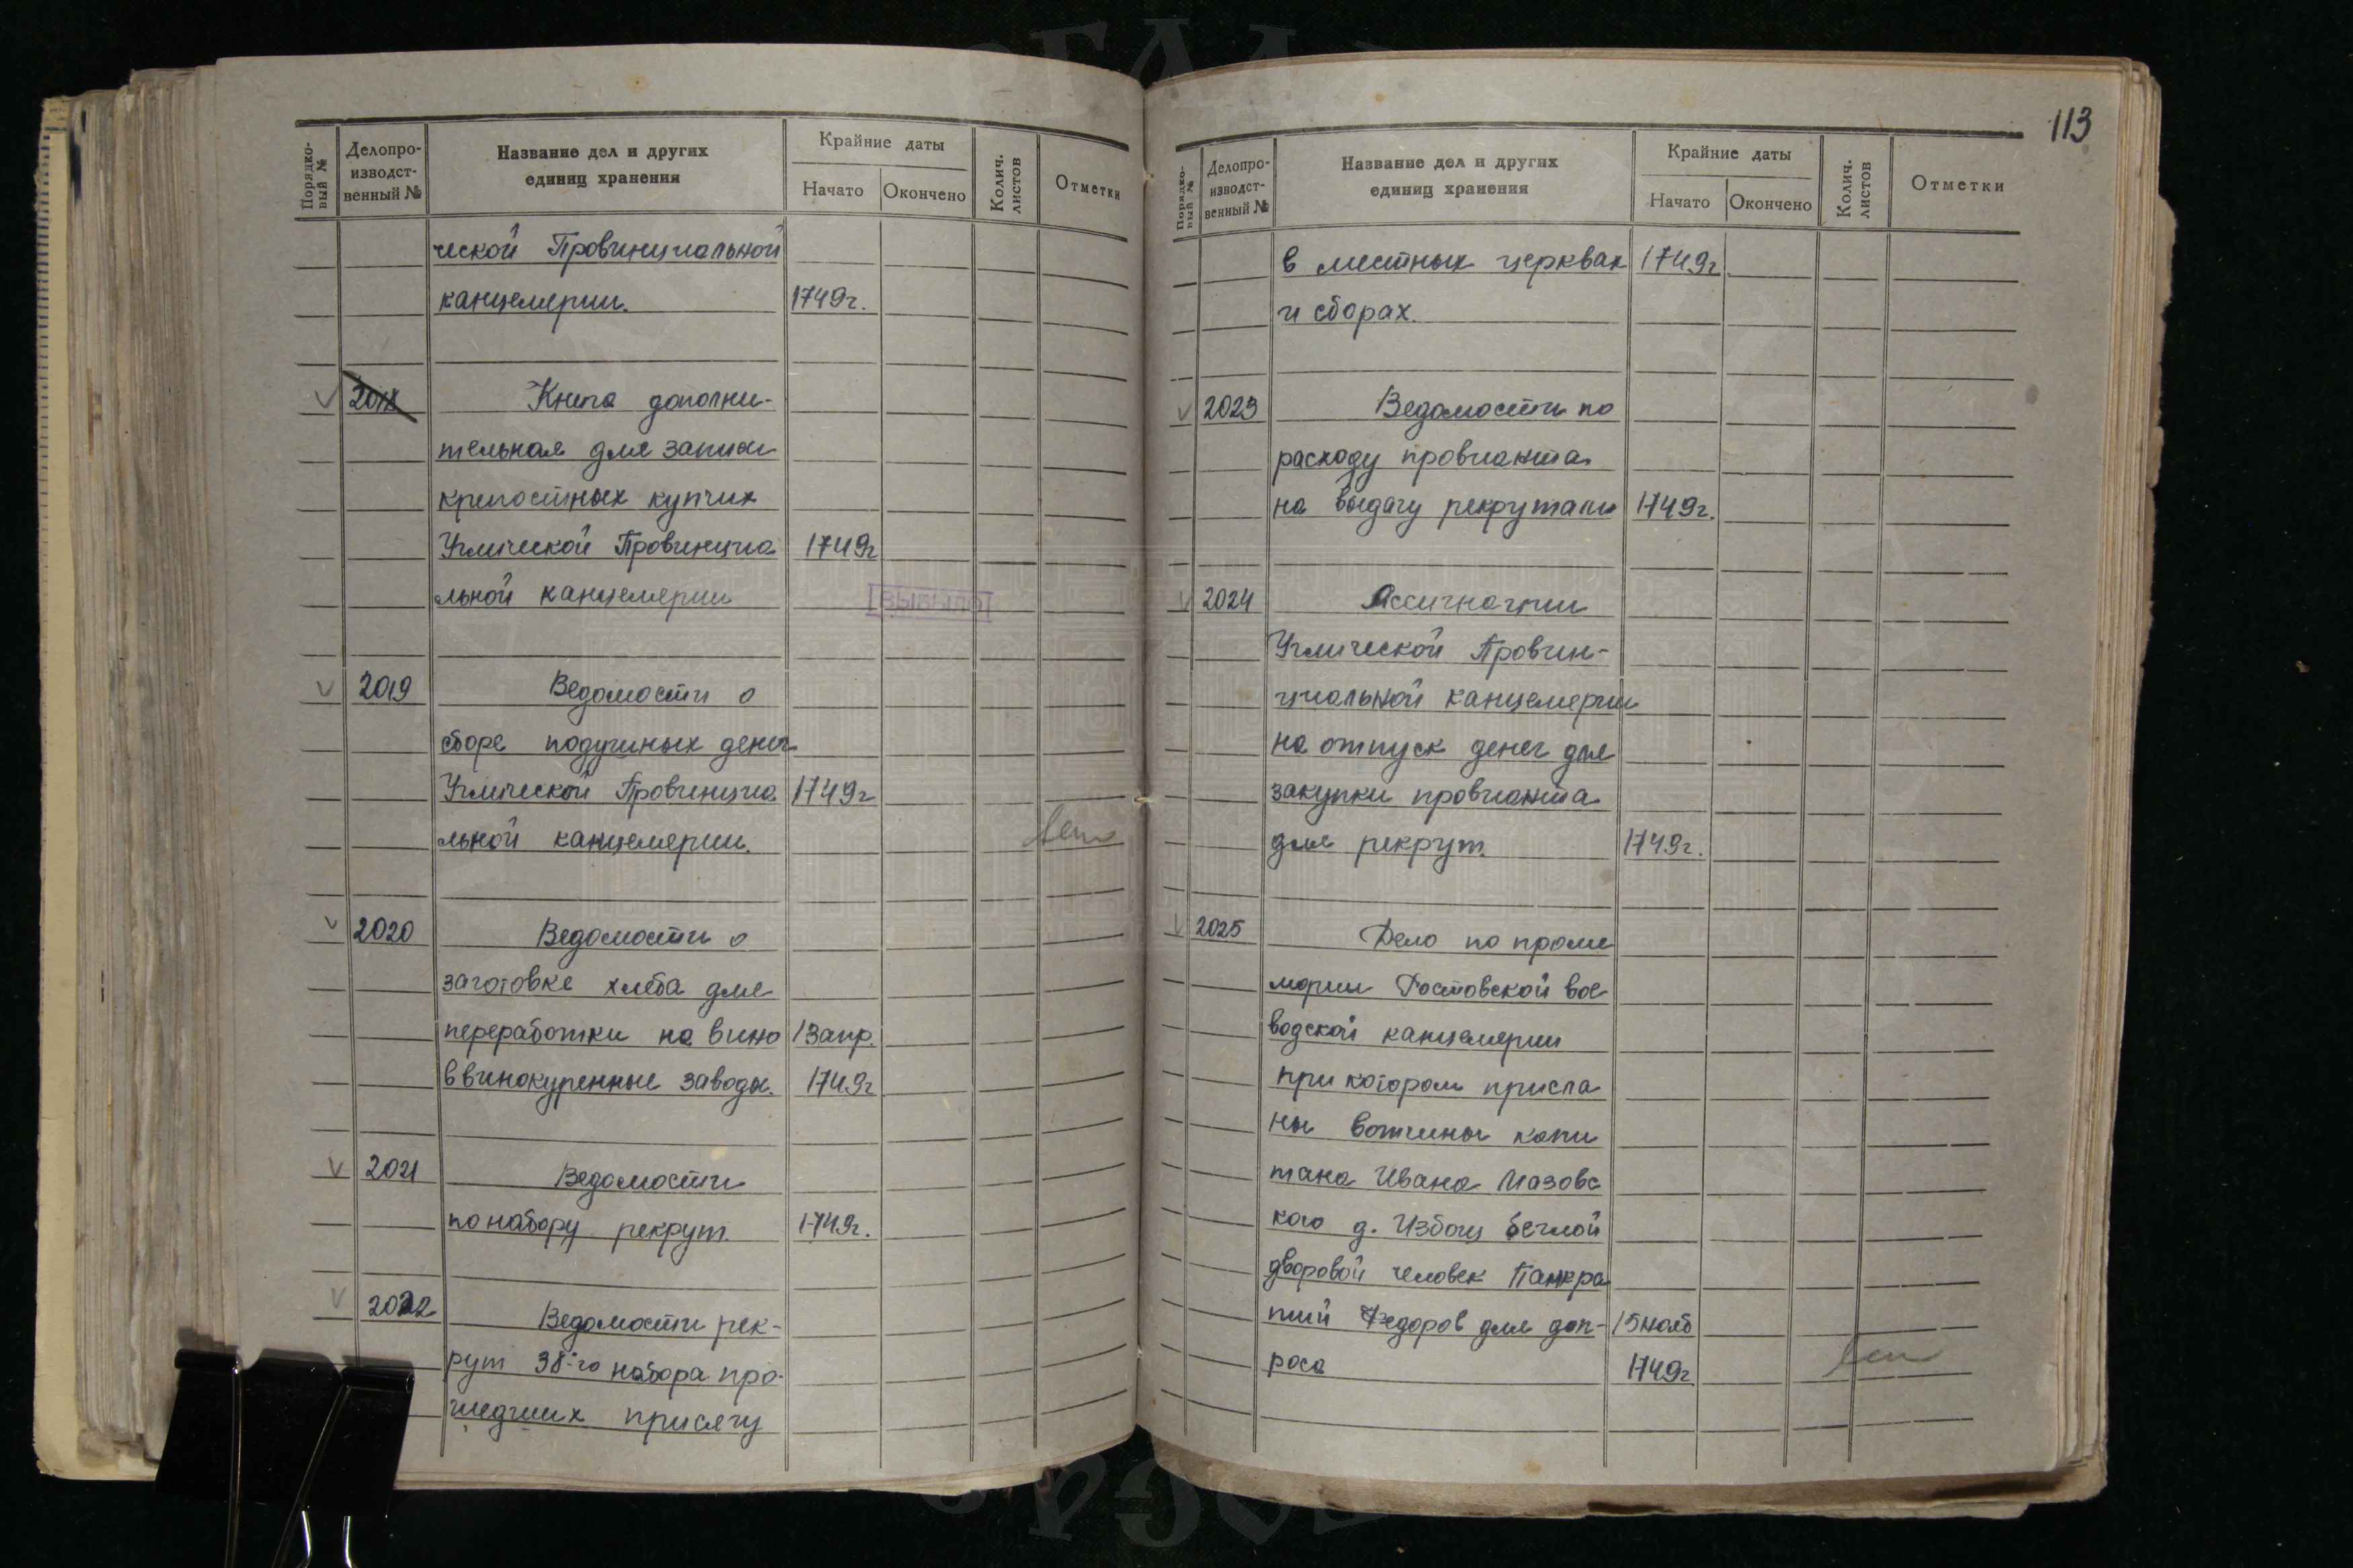 113
Порядко-
вый №
Делопро-
изводст-
венный №
Название дел и других
единиц хранения
Крайние даты
Начато
Окончено
Колич.
листов
Отметки
ческой Провинциальной
канцелярии. 1749г.
2018 Книга дополни-
тельная для записи
крепостных купчих
Угличской Провинциа 1749г
льной канцелярии
ВЫБЫЛО
2019 Ведомости о
сборе подушных денег
Угличской Провинциа 1749г
льной канцелярии.
2020 Ведомости о
заготовке хлеба для
переработки на вино 13апр.
в винокуренные заводы. 1749г
2021 Ведомости
по набору рекрут 1749г.
2022 Ведомости рек-
рут 38-го набора про-
шедших присягу
Порядко-
вый №
Делопро-
изводст-
венный №
Название дел и других
единиц хранения
Крайние даты
Начато
Окончено
Колич.
листов
Отметки
в местных церквах 1749г
и сборах.
2023 Ведомости по
расходу провианта
на выдачу рекрутам 1749г.
2024 Ассигнации
Угличской Провин-
циальной канцелярии
на отпуск денег для
закупки провианта
для рекрут. 1749г.
2025 Дело по проме
мории Ростовской вое
водской канцелярии
при котором присла
ны вотчины капи
тана Ивана Мазовс
кого д. беглой
дворовой человек Панкра
тий Федоров для доп- 15нояб
роса 1749г